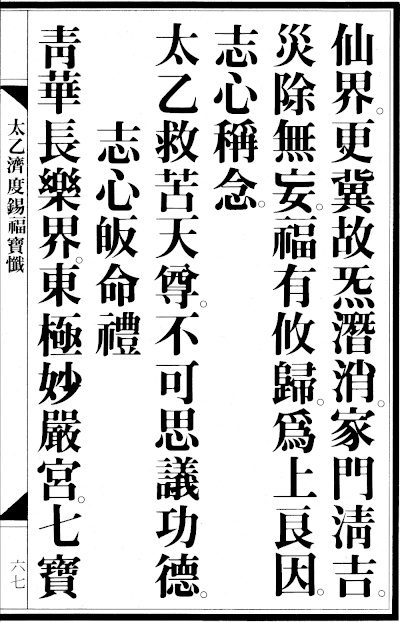 仙界。更冀故炁潛消。家門淸吉。
災除無妄。福有攸歸。爲上良因。
志心稱念。
太乙救苦天尊。不可思議功德。
志心皈命禮
靑華長樂界。東極妙嚴宮。七寶
太乙濟度錫福寶懺
六七